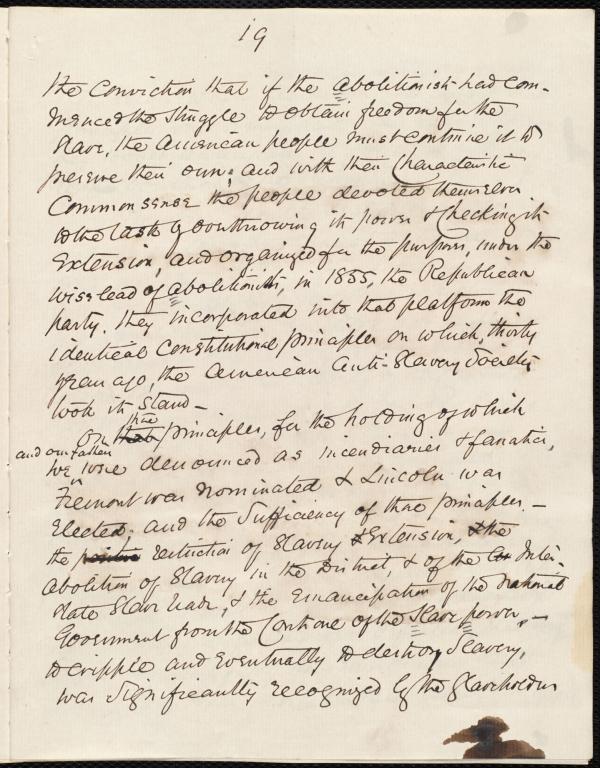 19
the conviction that if the abolitionist had com-
menced the struggle to obtain freedom for the
slave, the American people must continue it to
preserve their own; and with their characteristic
common sense the people devoted themselves
to the task of overthrowing its power & checking its
extension, and organized for the purpose, under the
wise lead of abolitionists, in 1855, the Republican
party. They incorporated into that platform the
identical Constitutional principles on which, thirty
years ago, the American Anti-Slavery Society
took its stand -
On these principles, for the holding of which
and our fallen
we were denounced as incendiaries & fanatics,
Fremont was nominated & Lincoln was
elected; and the sufficiency of those principles -
the restriction of Slavery Extension, the
abolition of Slavery in the District, & of the Inter-
state Slave trade, & the emancipation of the national
Government from the Control of the Slave power, -
to cripple and eventually to destroy Slavery,
was significantly recognized by the Slaveholders